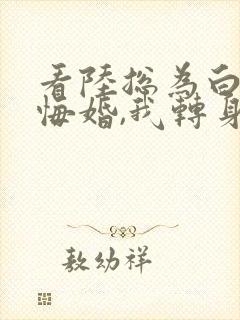 看陸總為白
悔婚,我轉身
敖幼祥